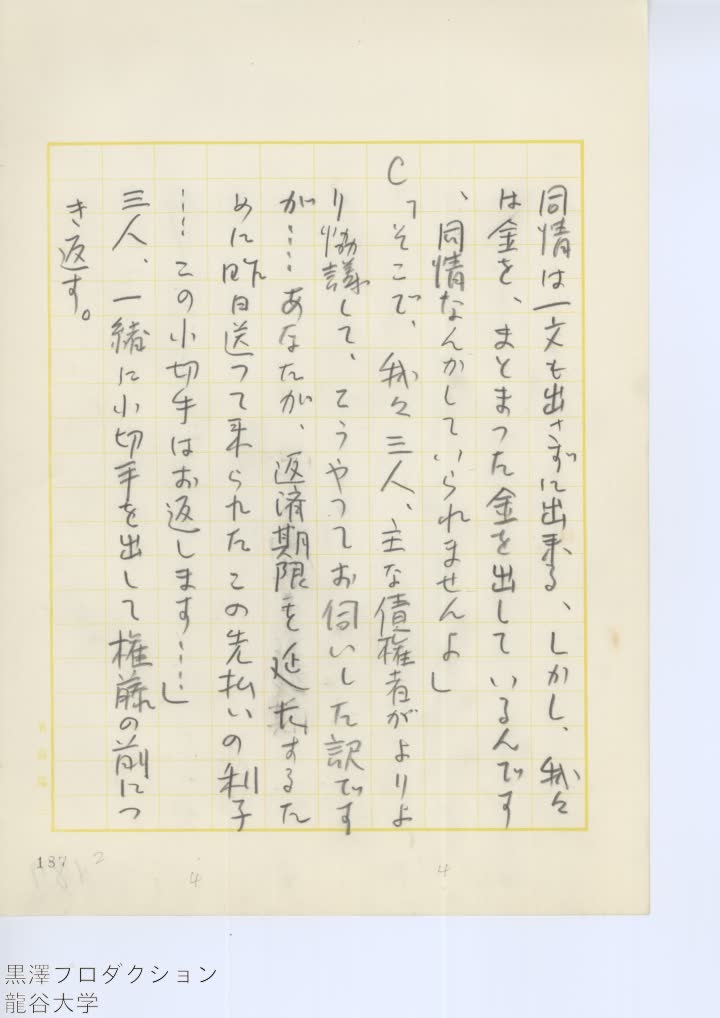 同情は一文も出さずに出来る、しかし、我々
は金を、まとまった金を出しているんです
、同情なんかしていられませんよ」
C「そこで、我々三人、主な債権者がよりよ
り協議して、こうやってお伺いした訳です
が……あなたが、返済期限を延期するた
めに昨日送って来られたこの先払いの利子
……この小切手はお返しします……」
三人、一緒に小切手を出して権藤の前につ
き返す。
187
2
4
4
黒澤プロダクション
龍谷大学